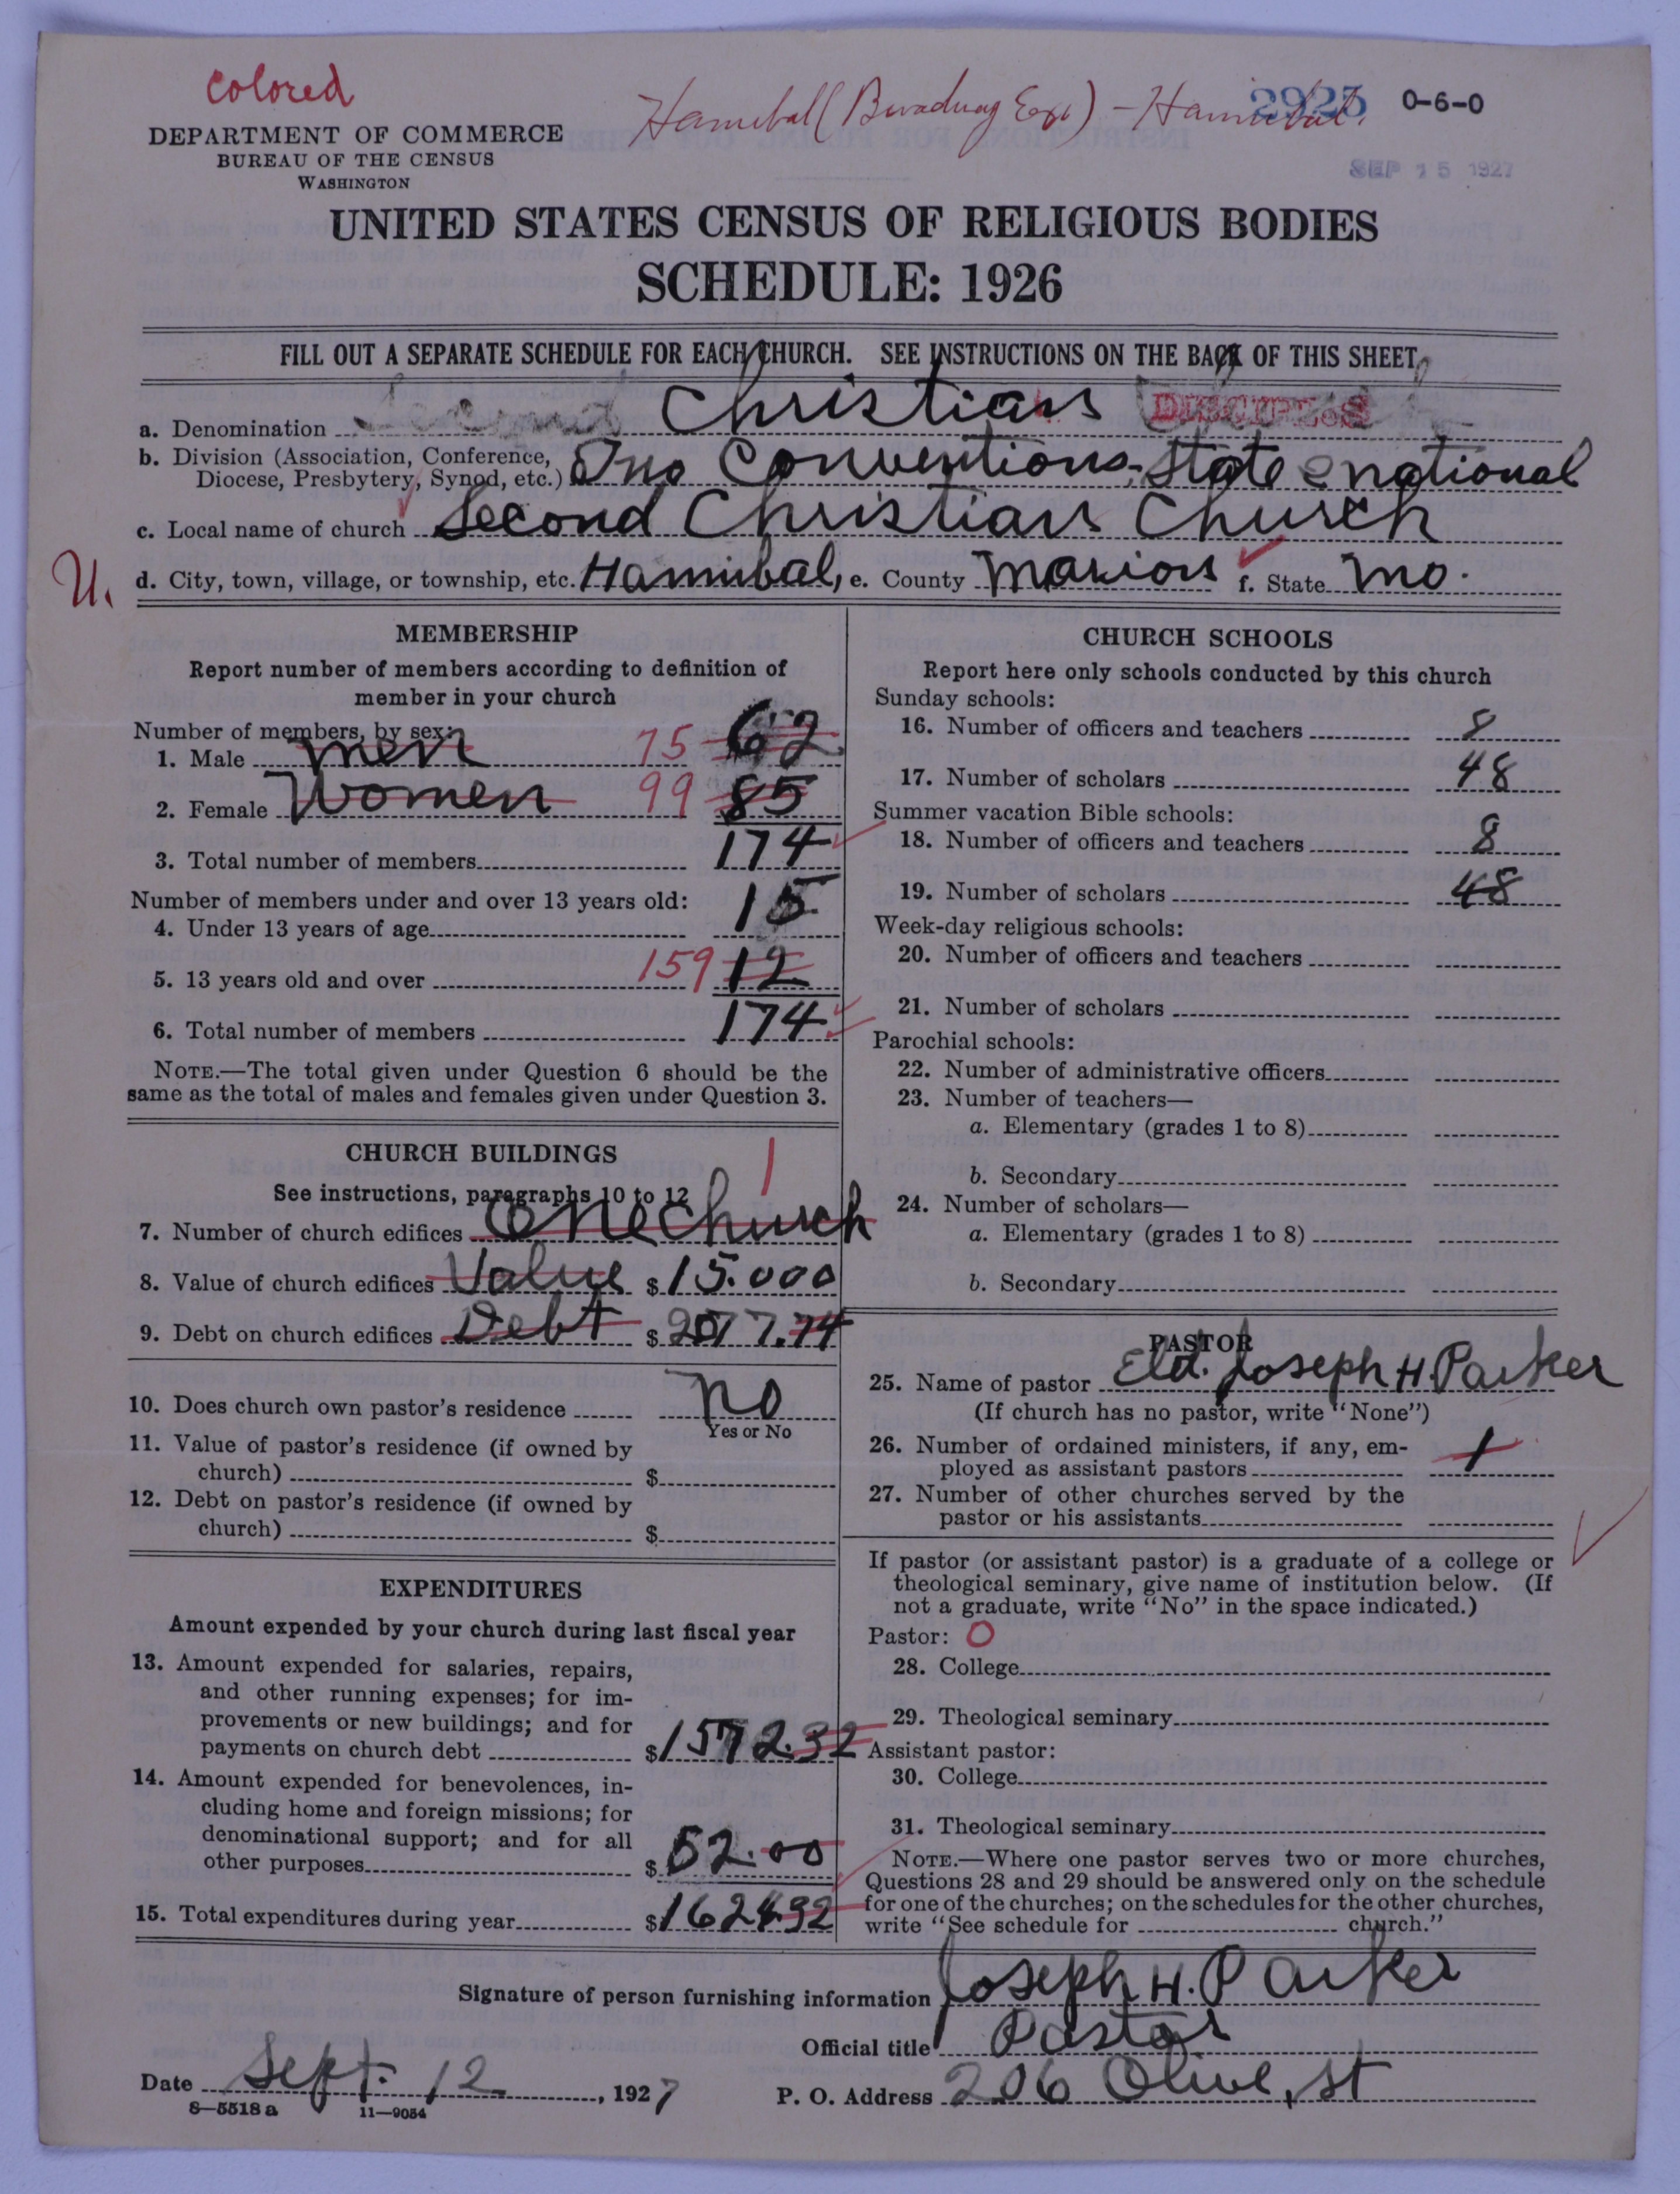 Colored
Hannibal (Broadway Ext) - Hannibal.
2925 0-6-0
DEPARTMENT OF COMMERCE
BUREAU OF THE CENSUS
WASHINGTON
SEP 15 1927
UNITED STATES CENSUS OF RELIGIOUS BODIES
SCHEDULE: 1926
FILL OUT A SEPARATE SCHEDULE FOR EACH CHURCH. SEE INSTRUCTIONS ON THE BACK OF THIS SHEET
a. Denomination Second Christian DISCIPLES
b. Division (Association, Conference,
Diocese, Presbytery, Synod, etc.) Mo Conventions, State & national
c. Local name of church Second Christian Church
U. d. City, town, village, or township, etc. Hannibal, e. County Marion f. State Mo.
MEMBERSHIP
Report number of members according to definition of
member in your church
Number of members, by sex:
1. Male men 75 62
2. Female Women 99 85
3. Total number of members 174
Number of members under and over 13 years old:
4. Under 13 years of age 15
5. 13 years old and over 159 12
6. Total number of members 174
NOTE.—The total given under Question 6 should be the
same as the total of males and females given under Question 3.
CHURCH BUILDINGS
See instructions, paragraphs 10 to 12
7. Number of church edifices One Church 1
8. Value of church edifices Value $15.000
9. Debt on church edifices Debt $2077.74
10. Does church own pastor's residence no
Yes or No
11. Value of pastor's residence (if owned by
church) $
12. Debt on pastor's residence (if owned by
church) $
EXPENDITURES
Amount expended by your church during last fiscal year
13. Amount expended for salaries, repairs,
and other running expenses; for im-
provements or new buildings; and for
payments on church debt $1572.32
14. Amount expended for benevolences, in-
cluding home and foreign missions; for
denominational support; and for all
other purposes $52.00
15. Total expenditures during year $1624.92
CHURCH SCHOOLS
Report here only schools conducted by this church
Sunday schools:
16. Number of officers and teachers 8
17. Number of scholars 48
Summer vacation Bible schools:
18. Number of officers and teachers 8
19. Number of scholars 48
Week-day religious schools:
20. Number of officers and teachers
21. Number of scholars
Parochial schools:
22. Number of administrative officers
23. Number of teachers—
a. Elementary (grades 1 to 8)
b. Secondary
24. Number of scholars—
a. Elementary (grades 1 to 8)
b. Secondary
PASTOR
25. Name of pastor Eld. Joseph H. Parker
(If church has no pastor, write "None")
26. Number of ordained ministers, if any, em-
ployed as assistant pastors 1
27. Number of other churches served by the
pastor or his assistants
If pastor (or assistant pastor) is a graduate of a college or
theological seminary, give name of institution below. (If
not a graduate, write "No" in the space indicated.)
Pastor: O
28. College
29. Theological seminary
Assistant pastor:
30. College
31. Theological seminary
NOTE.—Where one pastor serves two or more churches,
Questions 28 and 29 should be answered only on the schedule
for one of the churches; on the schedules for the other churches,
write "See schedule for church."
Signature of person furnishing information Joseph H. Parker
Official title Pastor
Date Sept. 12, 1927 P. O. Address 206 Olive, St
8—5518 a 11—9054